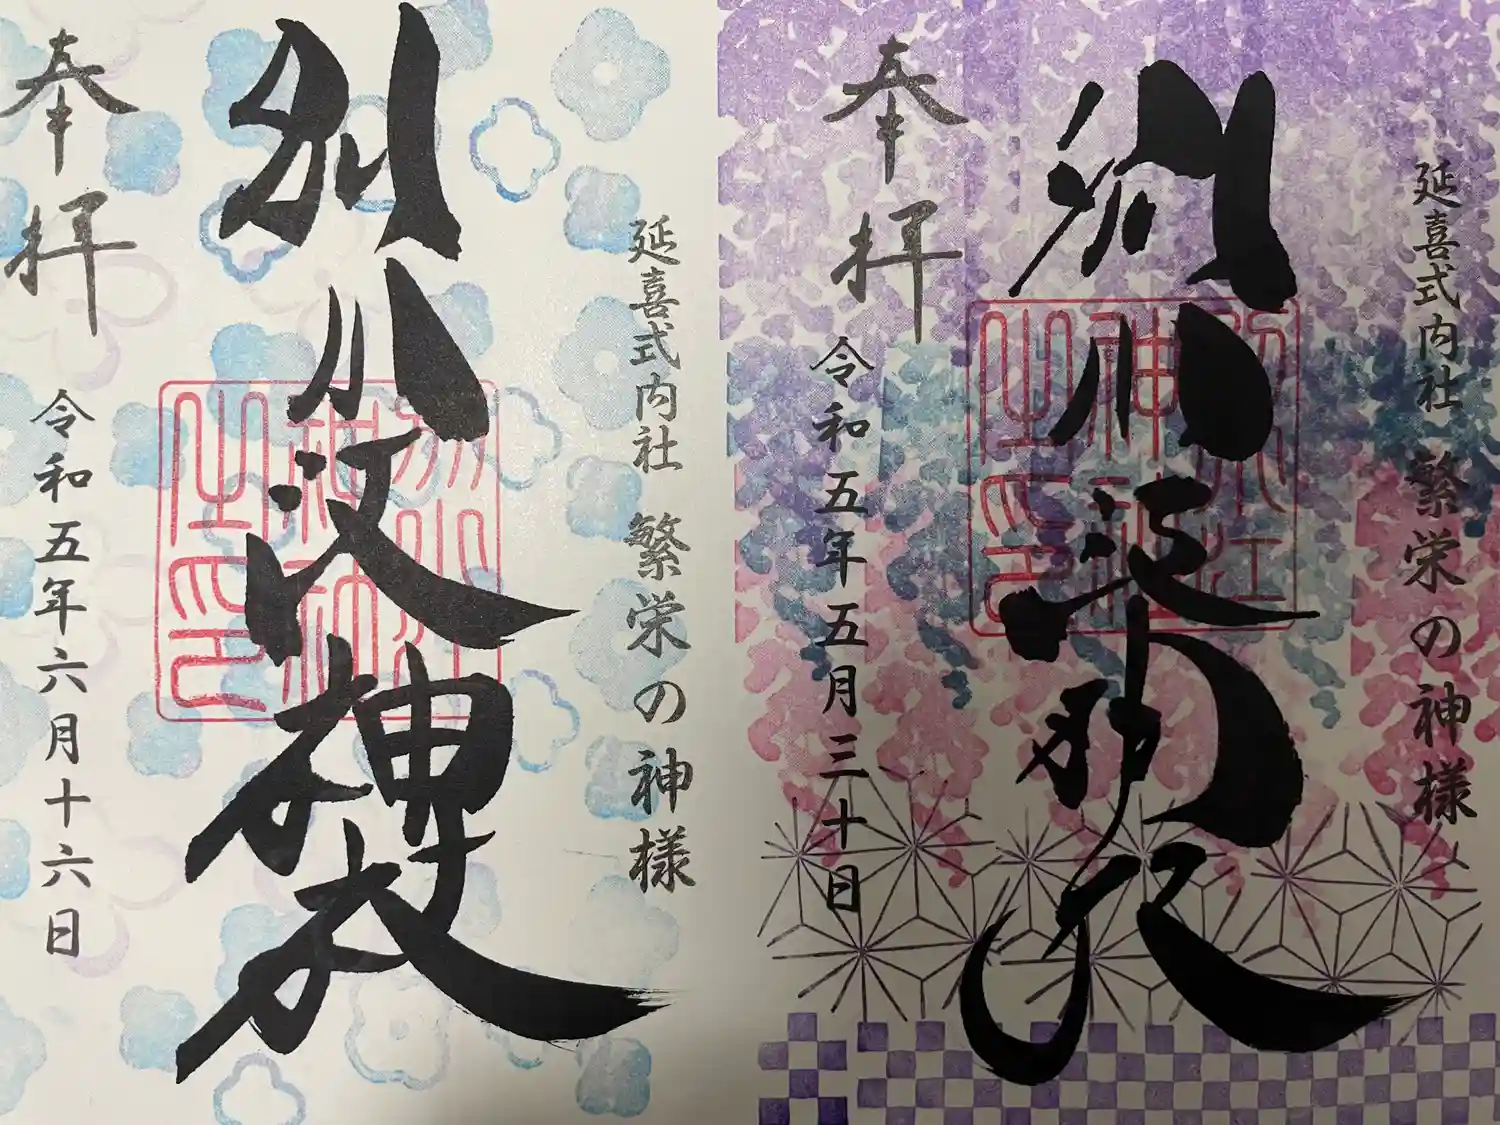 延喜式内社 繁栄の神様
別小江神社
別小江
神社
之印
奉拝
令和五年五月三十日
延喜式内社 繁栄の神様
別小江神社
別小江
神社
之印
奉拝
令和五年六月十六日